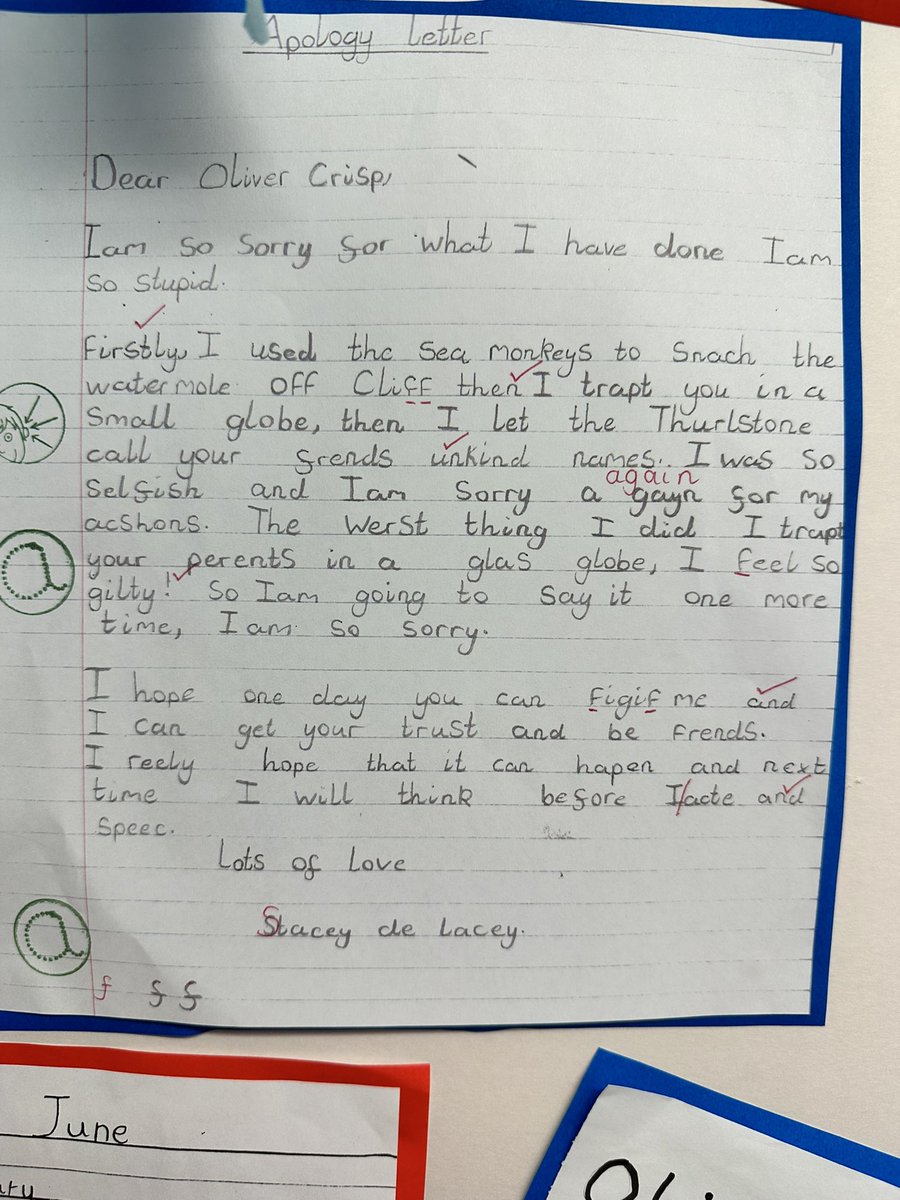 Apology Letter
Dear Oliver Crisp,
I am so sorry for what I have done I am
so stupid.
Firstly, I used the sea monkeys to snach the
watermole off Cliff then I trapt you in a
small globe, then I let the Thurlstone
call your frends unkind names. I was so
again
selfish and I am sorry a gayn for my
acshons. The werst thing I did I trapt
your perents in a glas globe, I feel so
gilty! so I am going to say it one more
time, I am so sorry.
I hope one day you can figif me and
I can get your trust and be frends.
I reely hope that it can hapen and next
time I will think before I/acte and
speec.
Lots of Love
Stacey de Lacey.
f f f
a
a
June
ary
Oli